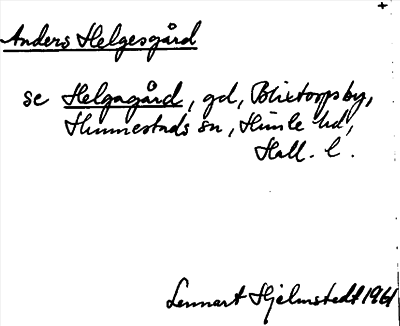 Anders Helgesgård
se Helgagård, gd, Blixtorps by,
Hunnestads sn, Himle hd,
Hall. l.
Lennart Hjelmstedt 1961